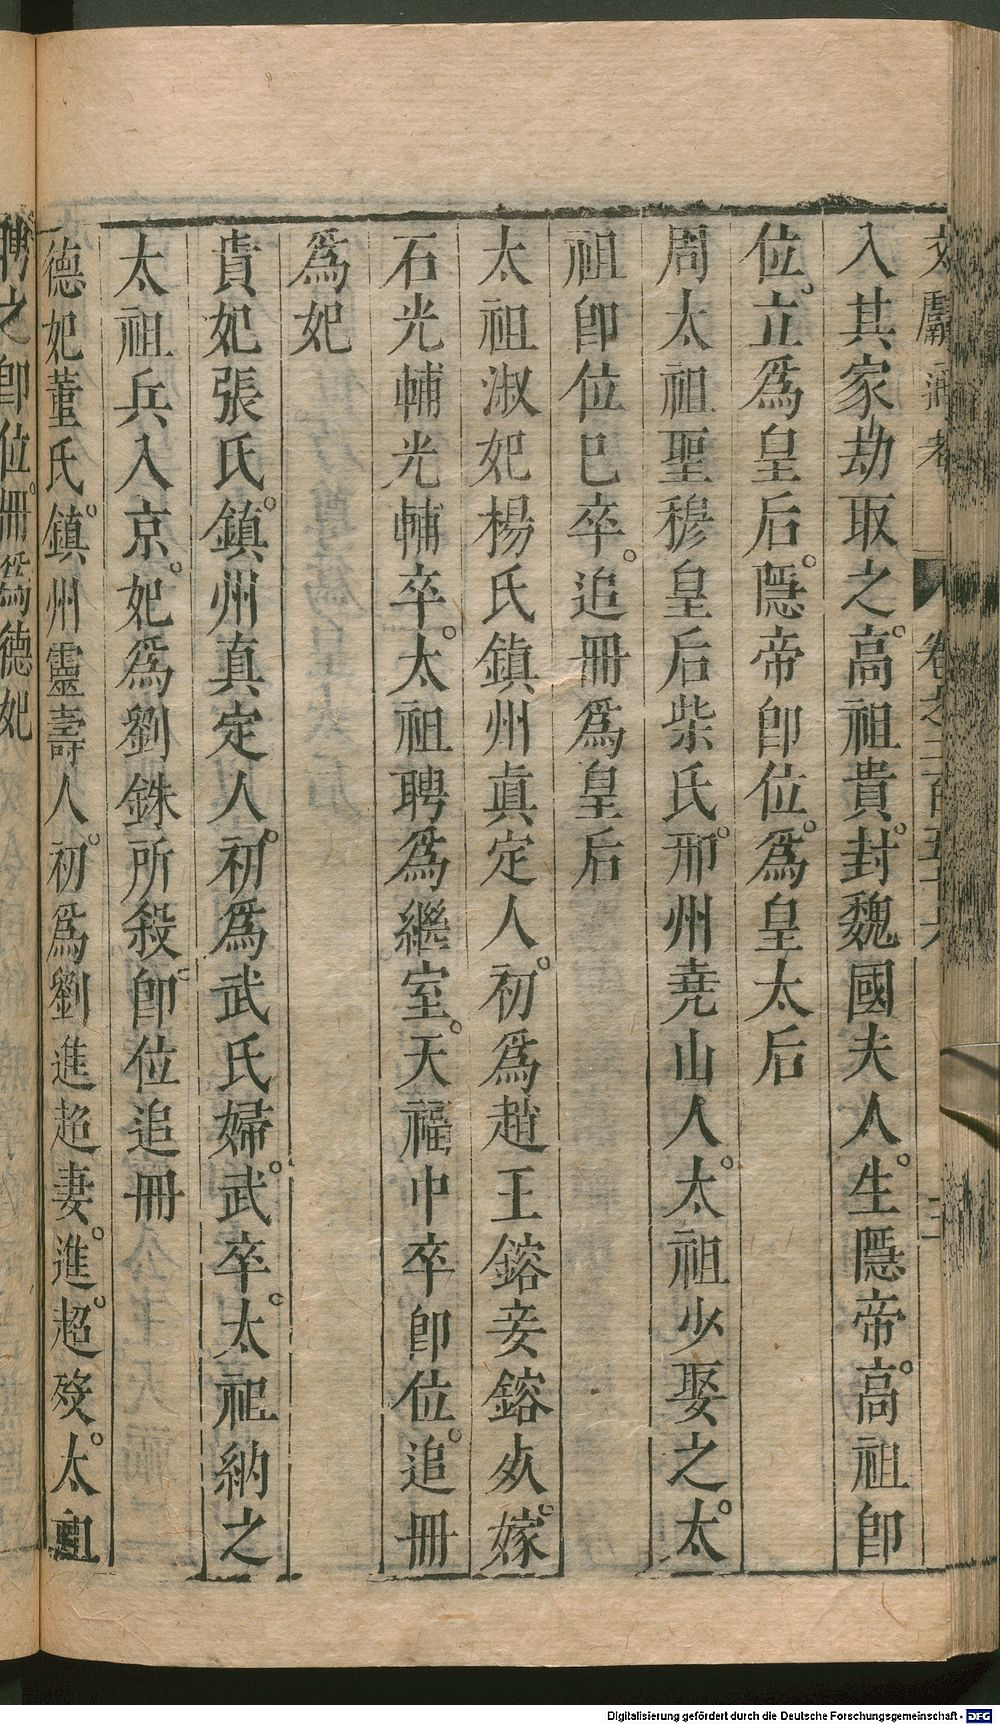 入其家劫取之。高祖貴。封魏國夫人。生隱帝。高祖卽
位。立爲皇后。隱帝卽位。爲皇太后
周太祖聖穆皇后柴氏。邢州堯山人。太祖少娶之。太
祖卽位已卒。追冊爲皇后
太祖淑妃楊氏鎮州真定人。初爲趙王鎔妾鎔
嫁。
石光輔光輔卒。太祖聘爲繼室。天福中卒卽位。追冊
爲妃
貴妃張氏。鎮州真定人。初爲武氏婦。武卒。太祖納之
太祖兵入京。妃爲劉銖所殺。卽位追冊
德妃董氏。鎮州靈壽人。初爲劉進超妻。進超歿。太祖
聘之卽位。冊爲德妃
文獻通考 卷之二百五十六
Digitalisierung gefördert durch die Deutsche Forschungsgemeinschaft - DFG